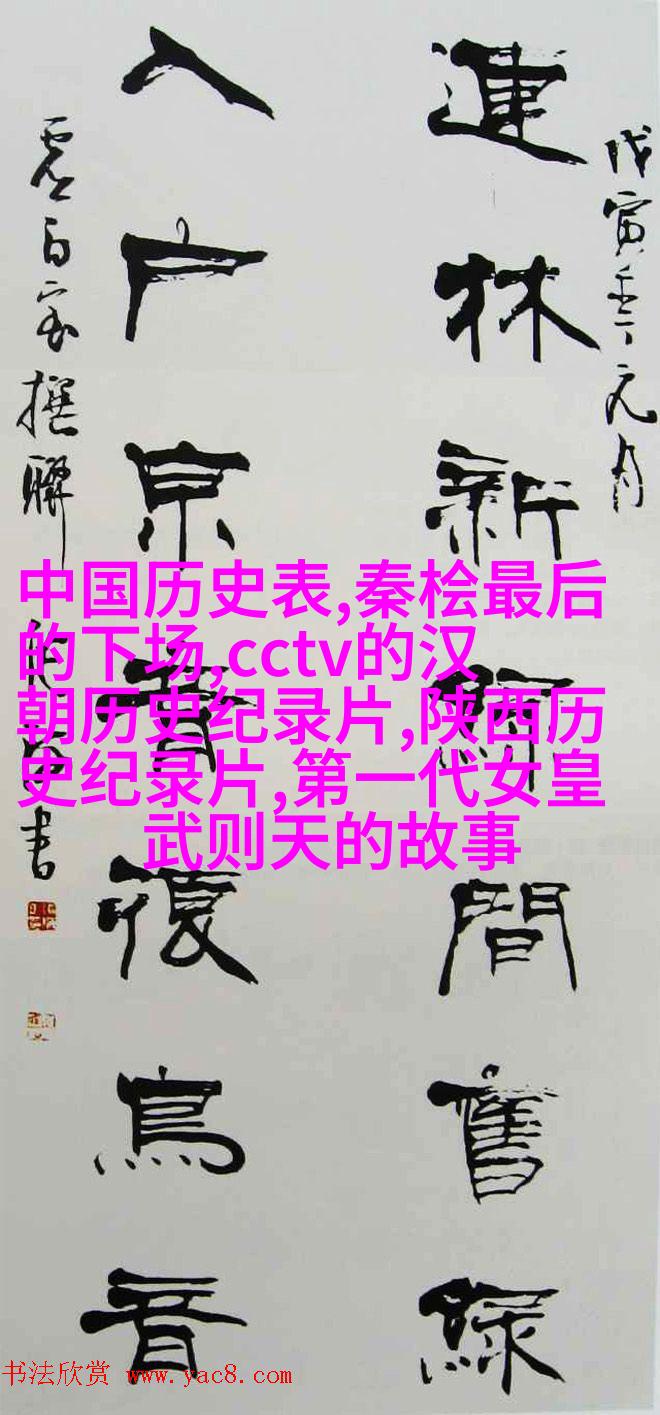 戊寅年元月
連林新綠間舊綠
入戶音復鳥音
撰聯
書
中国历史表,秦桧最后
的下场,cctv的汉
朝历史纪录片,陕西历
史纪录片,第一代女皇
武则天的故事
书法欣赏 www.yac8.com